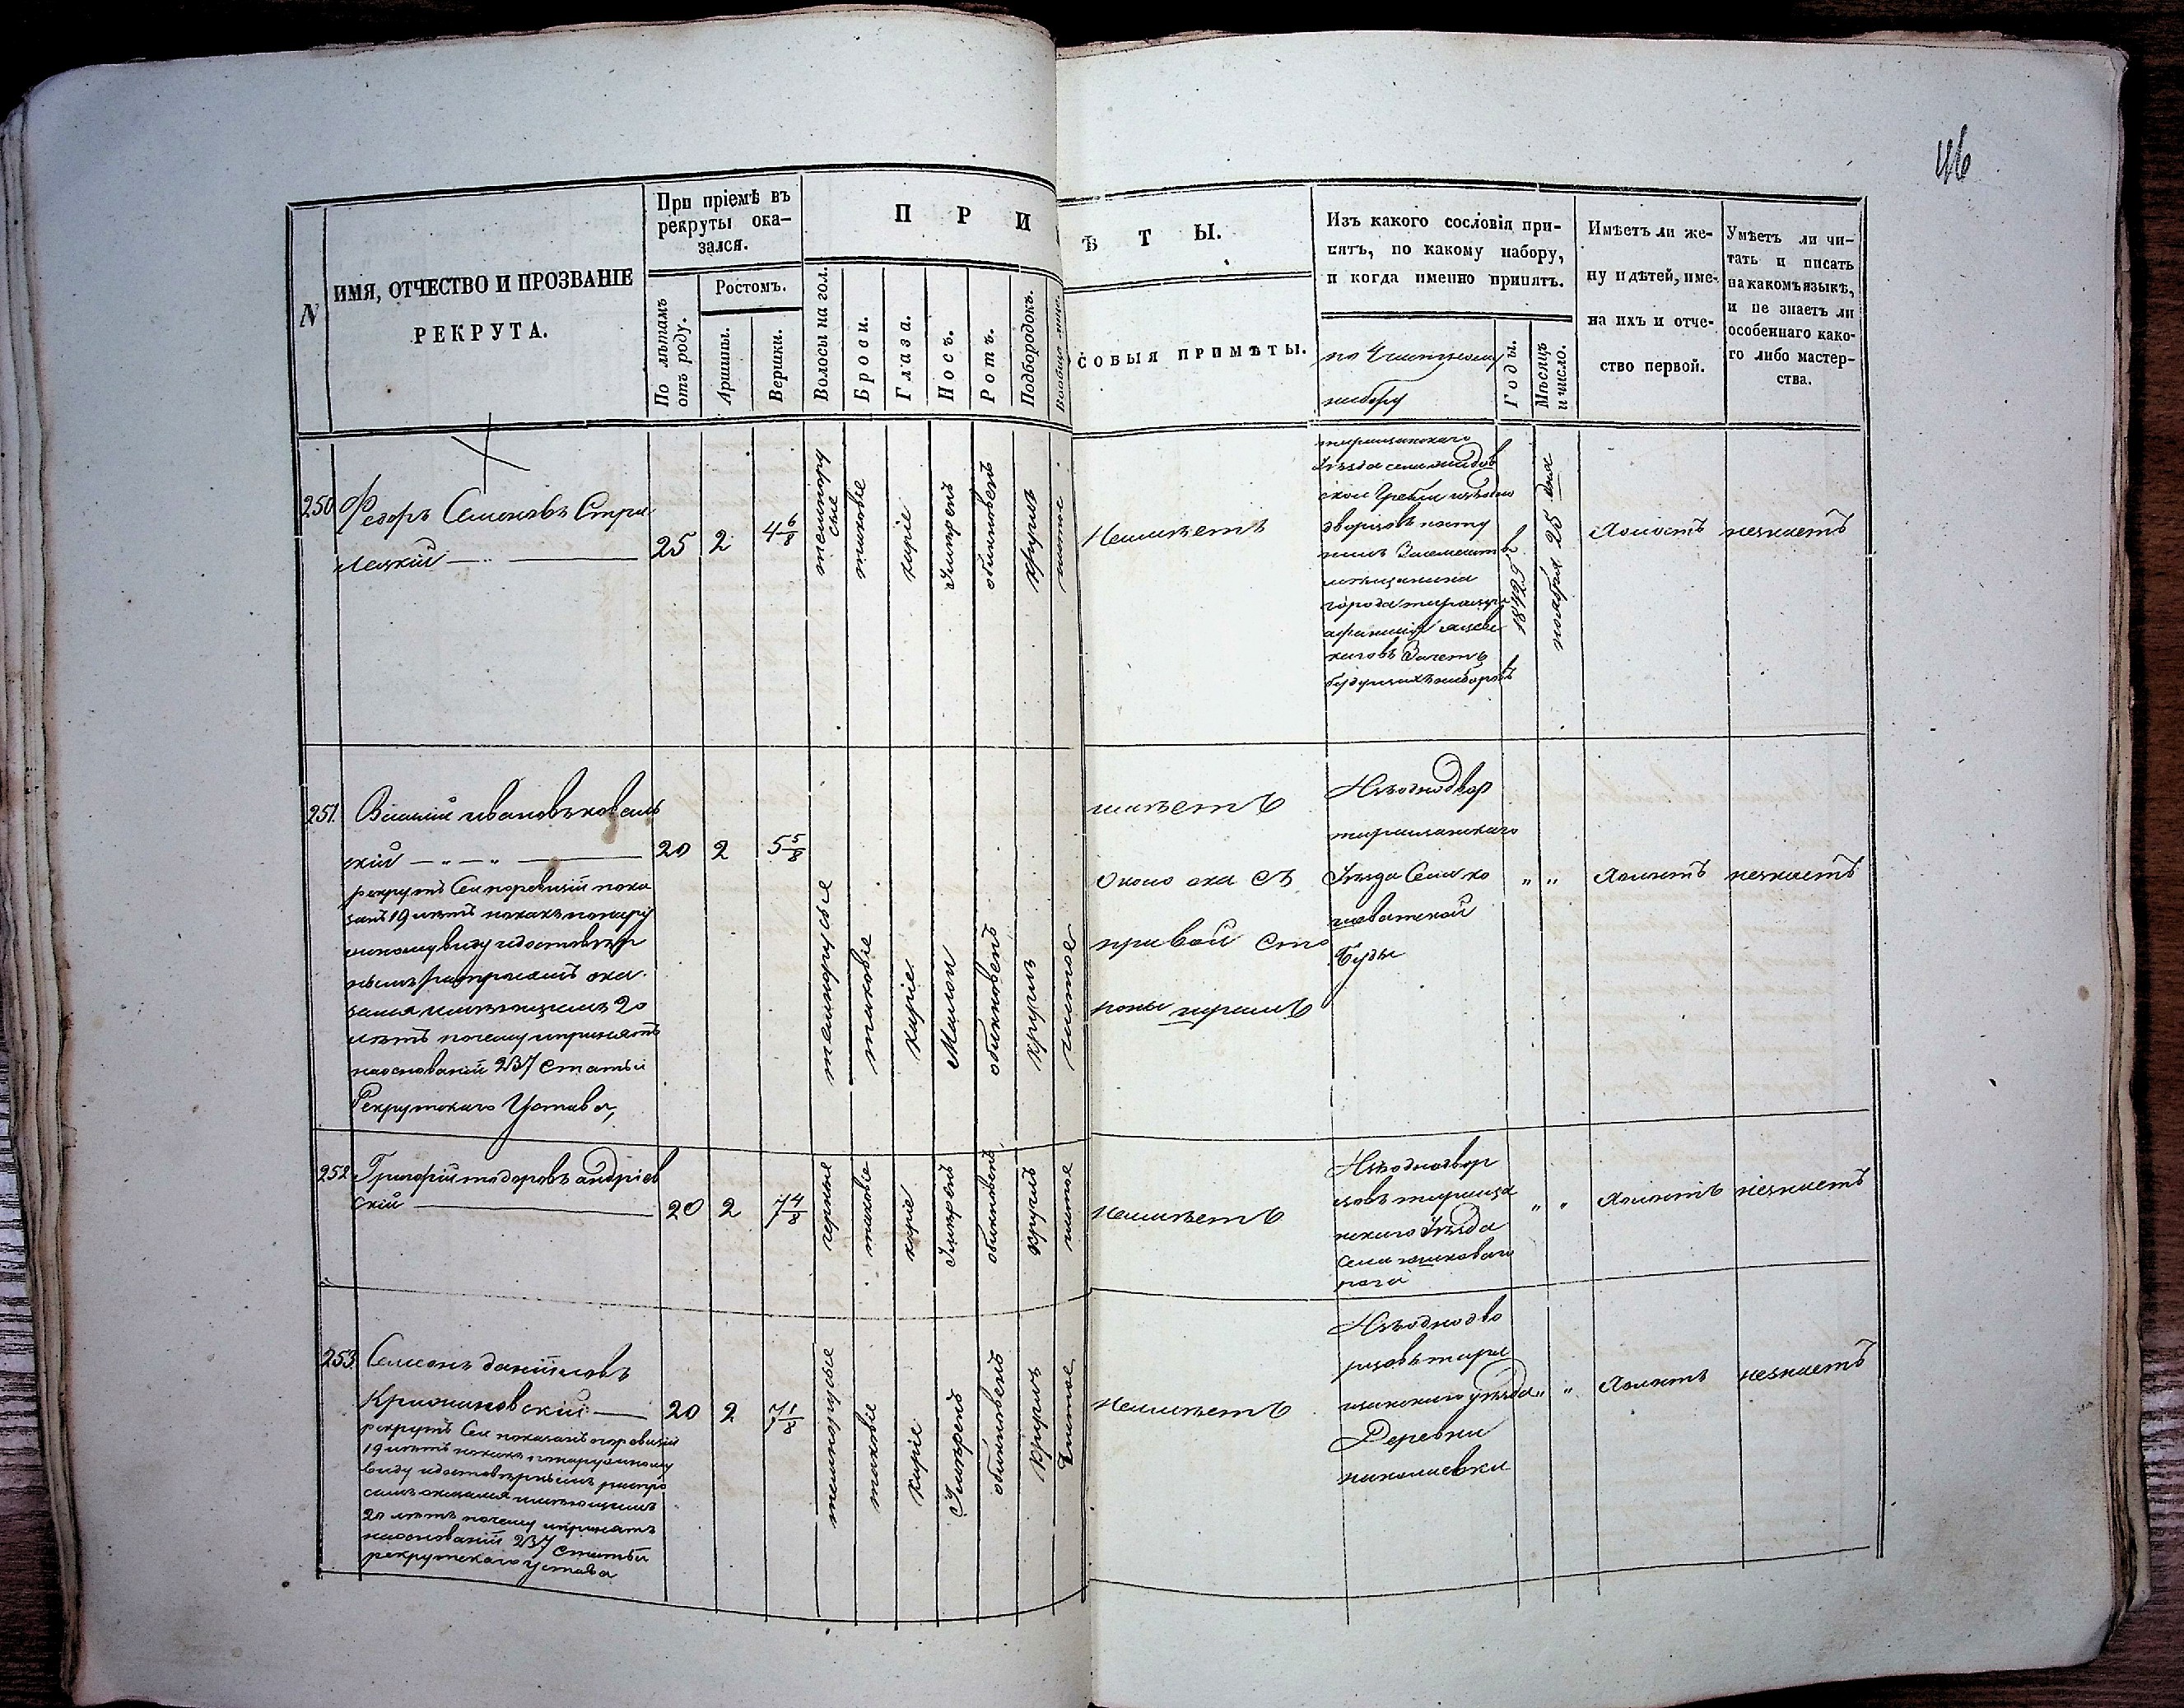 46
N
ИМЯ, ОТЧЕСТВО И ПРОЗВАНІЕ
РЕКРУТА.
При пріемѣ въ
рекруты ока-
зался.
По лѣтамъ
отъ роду.
Ростомъ.
Аршины.
Вершки.
П Р И
Волосы на гол.
Брови.
Глаза.
Носъ.
Ротъ.
Подбородокъ.
Вообще лице.
Ѣ Т Ы.
СОБЫЯ ПРИМѢТЫ.
Изъ какого сословія при-
нятъ, по какому набору,
и когда именно принятъ.
набору
Годы.
Мѣсяцъ
и число.
Имѣетъ ли же-
ну и дѣтей, име-
на ихъ и отче-
ство первой.
Умѣетъ ли чи-
тать и писать
на какомъ языкѣ,
и не знаетъ ли
особеннаго како-
го либо мастер-
ства.
250
Федоръ Семеновъ Стри
лецкій
25
2
4 6/8
темнору
сые
таковые
каріе
умѣренъ
обыкновенъ
круглъ
чистое
Неимѣетъ
тиращанскаго
Уѣзда села
дворцовъ посту
мѣщанина
города
будущихъ наборовъ
1849
ноября 25 дня
Холостъ
незнаетъ
251.
ивановъ коваль
скій
рекрутъ сей поревизіи пока
занъ 19 лѣтъ покакъ понару
жному виду идостовѣр
нымъ распросамъ ока
зался имѣющимъ 20
лѣтъ почему ипринятъ
наоснованіи 237 статьи
Рекрутскаго Устава,
20
2
5 5/8
темнорусые
таковые
каріе
Малой
обыкновенъ
круглъ
чистое
имѣетъ
Около ока съ
правой сто
роны шрамъ
Изъоднодвор
тиращанскаго
Уѣзда Села
Буды
" "
Холостъ
незнаетъ
252
Григорій тодоровъ андріев
скій
20
2
7 4/8
черные
таковые
каріе
умѣренъ
обыкновенъ
круглій
чистое
неимѣетъ
Изъоднодвор
цовъ тираща
нскаго Уѣзда
села
рога
" "
Холостъ
незнаетъ
253.
Семенъ даніиловъ
Крижановскій
рекрутъ сей показанъ поревизіи
19 лѣтъ покакъ понаружному
виду идостовѣрнымъ распро
самъ оказался имѣющимъ
20 лѣтъ почему ипринятъ
наоснованіи 237 статьи
рекрутскаго устава
20
2
7 1/8
темнорусые
таковые
каріе
Умѣренъ
обыкновенъ
круглъ
Чистое
неимѣетъ
Изъоднодво
рцовъ тира
щанскаго уѣзда
Деревни
николаевки
" "
Холостъ
незнаетъ